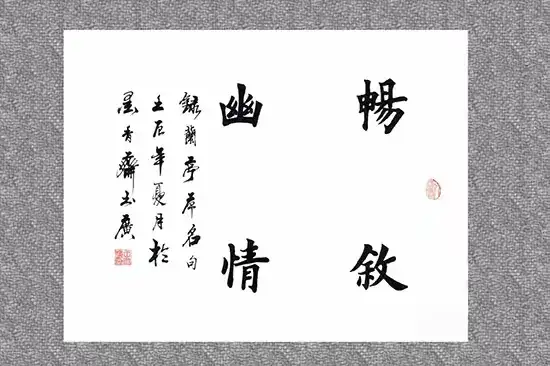 暢敘
幽情
録蘭亭序名句
壬辰年夏月於
墨香齋玉廣